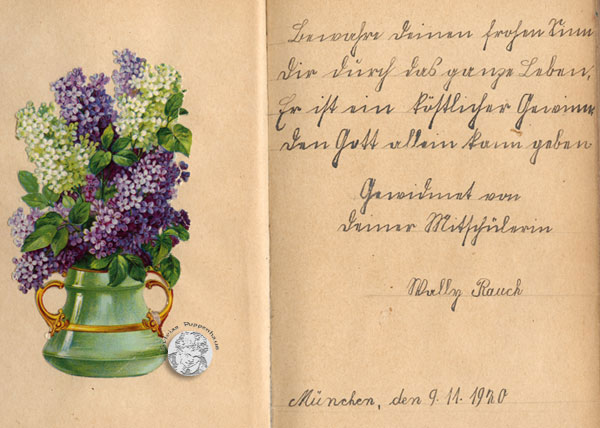 Bewahre deinen frohen Sinn
Dir durch das ganze Leben,
Er ist ein köstlicher Gewinn
den Gott allein kann geben
Gewidmet von
deiner Mitschülerin
Wally Rauch
München, den 9. 11. 1920
Puppenhaus